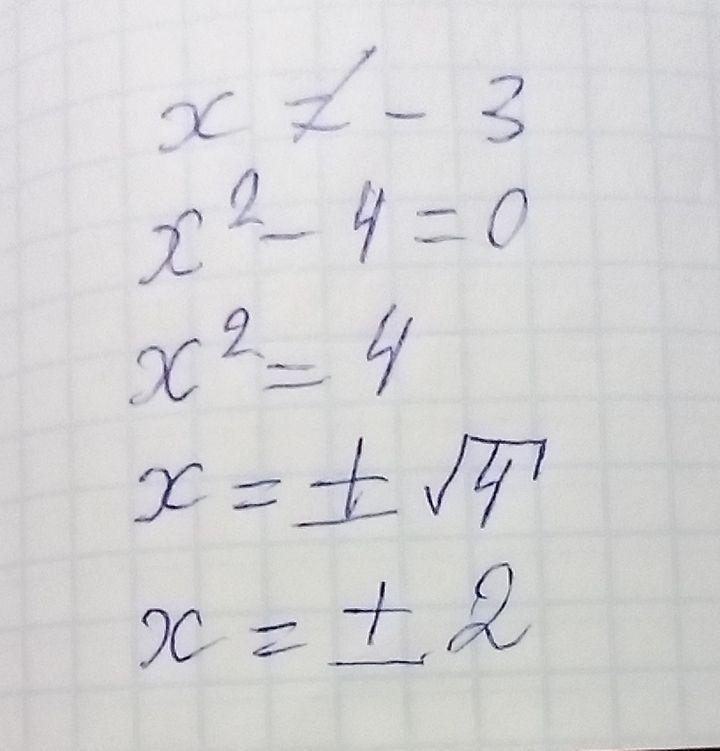 x ≠ - 3
x² - 4 = 0
x² = 4
x = ± √4
x = ± 2